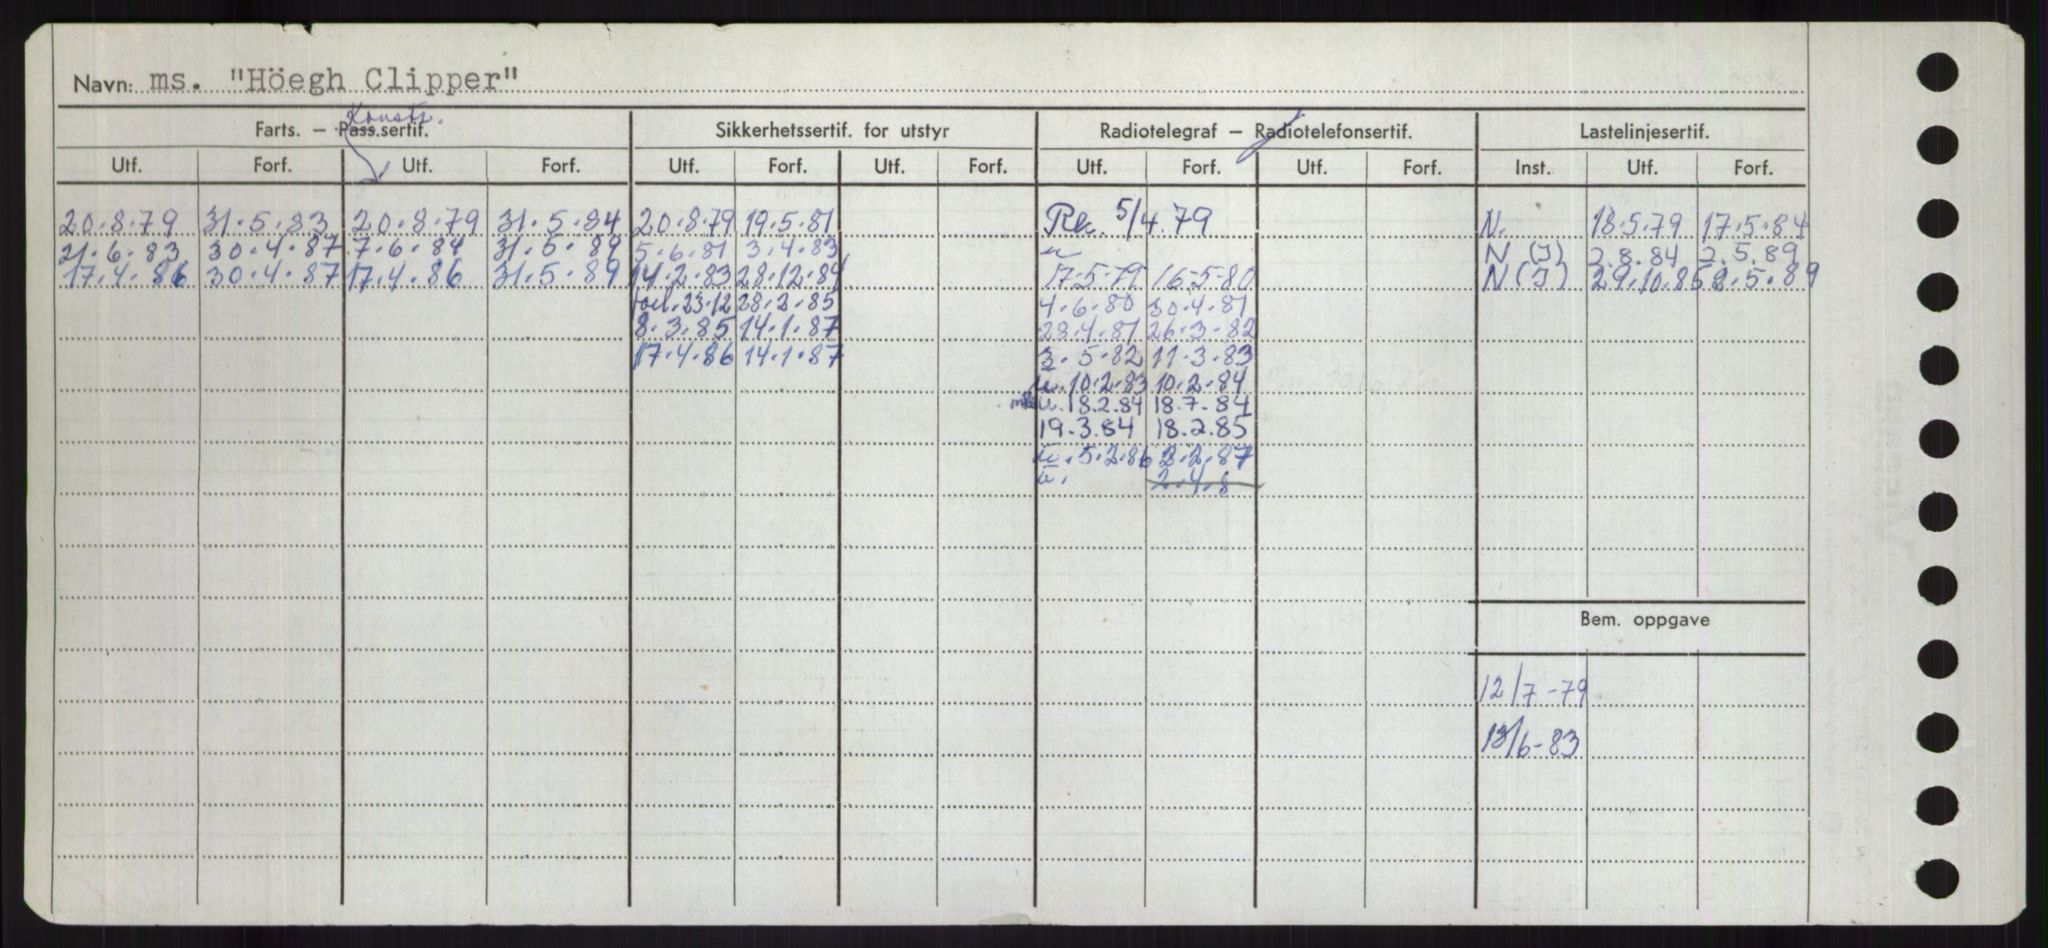 Navn: ms. "Höegh Clipper"
Konstr.
Farts. — Pass.sertif. Sikkerhetssertif. for utstyr Radiotelegraf — Radiotelefonsertif. Lastelinjesertif.
Utf. Forf. Utf. Forf. Utf. Forf. Utf. Forf. Utf. Forf. Utf. Forf. Inst. Utf. Forf.
20.8.79 31.5.83 20.8.79 31.5.84 20.8.79 19.5.81 5/4.79 N. 18.5.79 17.5.84
21.6.83 30.4.87 7.6.84 31.5.89 5.6.81 3.4.83 N (I) 2.8.84 2.5.89
17.4.86 30.4.87 17.4.86 31.5.89 14.2.83 28.12.84 17.5.79 16.5.80 N (I) 29.10.85 2.5.89
23.12 28.2.85 4.6.80 30.4.81
8.3.85 14.1.87 28.4.81 26.3.82
17.4.86 14.1.87 3.5.82 11.3.83
u. 10.2.83 10.2.84
u. 18.2.84 18.7.84
19.3.84 18.2.85
u. 5.2.86 2.2.87
u. 2.4.8
Bem. oppgave
12/7-79
13/6-83